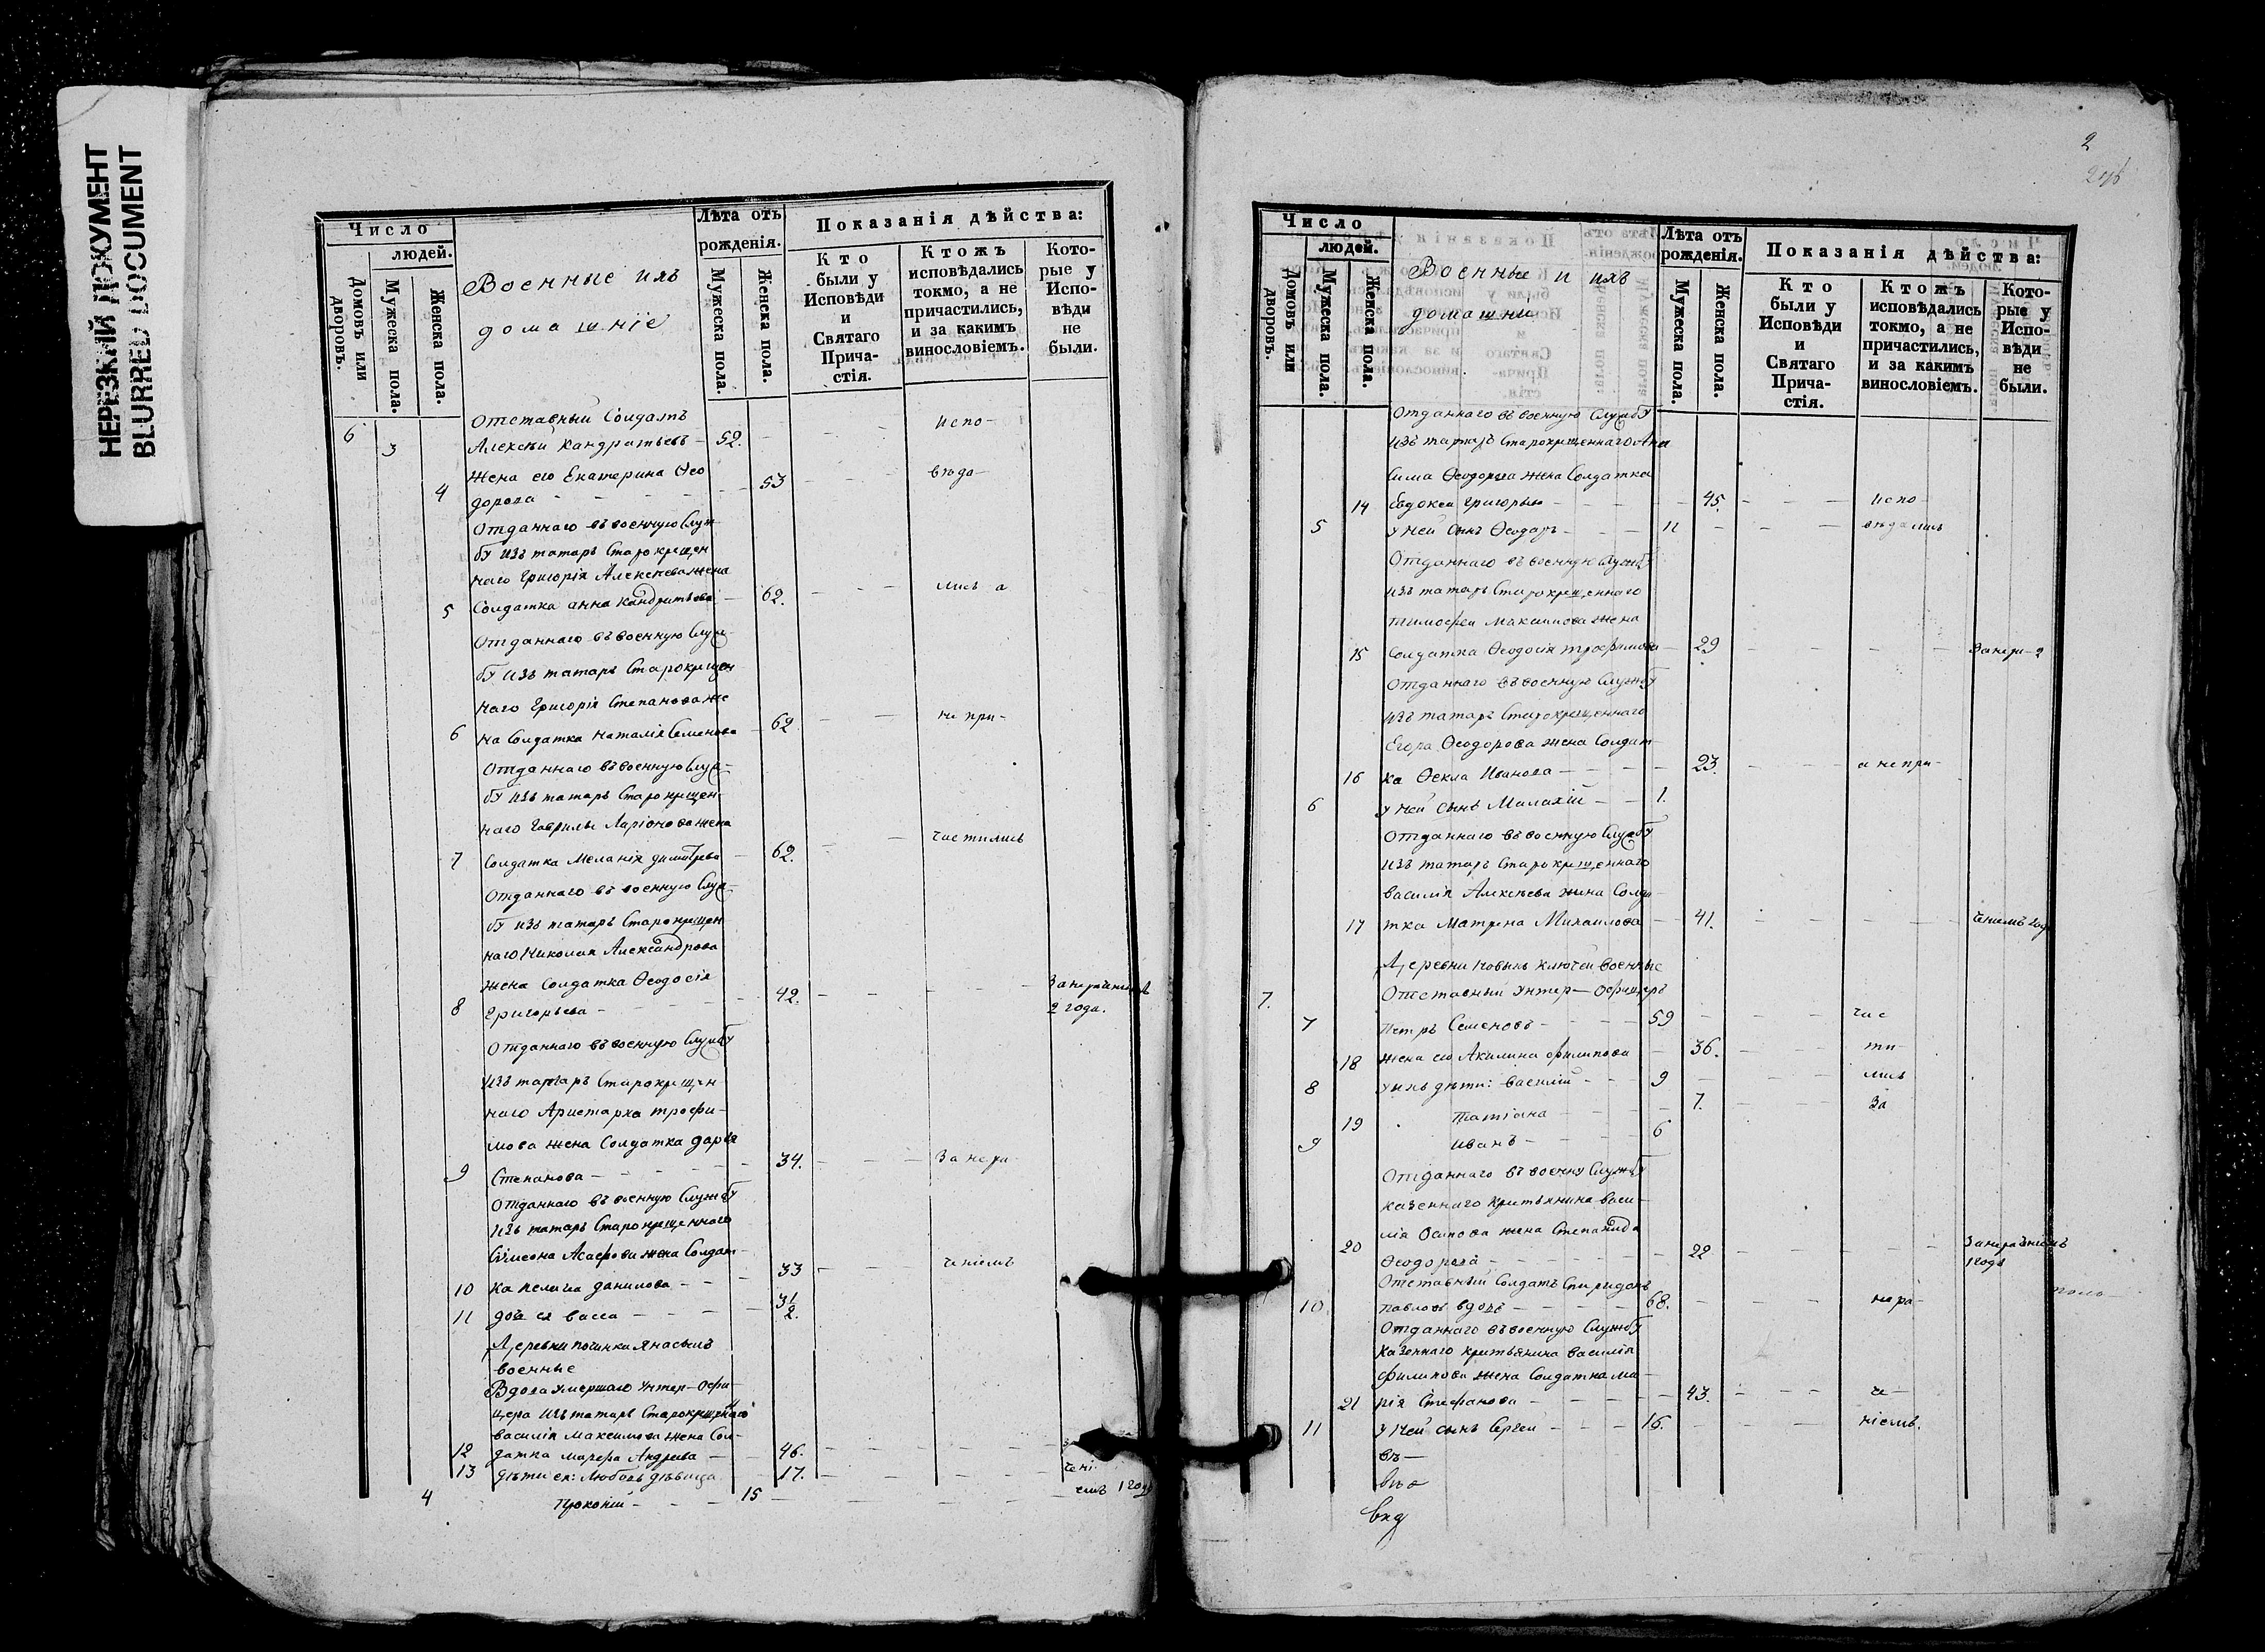 НЕРЕЗКИЙ ДОКУМЕНТ
BLURRED DOCUMENT
Число
людей.
Домовъ или дворовъ.
Мужеска пола.
Женска пола.
Военные ихъ
домашніе
Лѣта отъ рожденія.
Мужеска пола.
Женска пола.
Показанія дѣйства:
Кто были у Исповѣди и Святаго Прича-стія.
Ктожъ исповѣдались токмо, а не причастились, и за какимъ винословіемъ.
Кото-рые у Испо-вѣди не были.
Отставный Солдатъ
6 3 Алексѣй Кандратьевъ - 52. испо-
Жена его Екатерина Ѳео
4 дорова - 53 вѣда-
Отданнаго въ военную Служ
бу изъ татаръ Старокрещен
наго Григорія Алексѣева жена
5 Солдатка Анна Кандратьева - 62. лись а
Отданнаго въ военную Служ-
бу изъ татаръ Старокрещен
наго Григорія Степанова же
6 на Солдатка Наталія Семенова 62 не при-
Отданнаго въ военную Служ-
бу изъ татаръ Старокрещен-
наго Гаврилы Ларіонова жена
7 Солдатка Меланія Димитрева - 62. частились
Отданнаго въ военную Служ-
бу изъ татаръ Старокрещен
наго Николая Александрова
жена Солдатка Ѳеодосія
8 Григорьева - 42. За нераченіемъ 2 года.
Отданнаго въ военную Службу
изъ татаръ Старокрещен
наго Аристарха Трофи-
мова жена Солдатка Дарья
9 Степанова - 34. За нера
Отданнаго въ военную Службу
изъ татаръ Старокрещеннаго
Сѵмеона Асафова жена Солдат-
10 ка Пелагія Данилова - 33 ченіемъ
11 дочь ея Васса - 3 1/2.
Деревни Починка Янасалъ
военные
Вдова умершаго Унтер-Офи-
цера изъ татаръ Старокрещеннаго
Василія Максимова жена Сол-
12 датка Марфа Андрева - 46.
13 дѣти ея: Любовь дѣвица 17. чені
4 Прокопій - 15 емъ 1 годъ
2
Число
людей.
Домовъ или дворовъ.
Мужеска пола.
Женска пола.
Военные и ихъ
домашни
Лѣта отъ рожденія.
Мужеска пола.
Женска пола.
Показанія дѣйства:
Кто были у Исповѣди и Святаго Прича-стія.
Ктожъ исповѣдались токмо, а не причастились, и за какимъ винословіемъ.
Кото-рые у Испо-вѣди не были.
Отданнаго въ военную Службу
изъ татаръ Старокрещеннаго Ани
сима Ѳеодорова жена Солдатка
14 Евдокея Григорьева - 45. испо
5 У ней сынъ Ѳеодоръ - 11 вѣдались
Отданнаго въ военную Службу
изъ татаръ Старокрещеннаго
Тимофея Максимова жена
15 Солдатка Ѳеодосія Трофимова - 29 За нера-2
Отданнаго въ военную Службу
изъ татаръ Старокрещеннаго
Егора Ѳеодорова жена Солдат-
16 ка Ѳекла Иванова - 23. а не при-
6 У ней сынъ Малахій - 1.
Отданнаго въ военную Службу
изъ татаръ Старокрещеннаго
Василія Алексѣева жена Солда-
17 тка Матрена Михаилова - 41. ченіемъ 2 года
Деревни Новыхъ Ключей военные
7. Отставный Унтер-Офицеръ
7 Петръ Семеновъ - 59 час
18 Жена его Акилина Филипова - 36. ти
8 У нихъ дѣти: Василій - 9 лись
19 Татіана - 7. За
9 Иванъ - 6
Отданнаго въ военну Службу
казеннаго крестьянина Васи-
лія Осипова жена Степанида
20 Ѳеодорова - 22 За нераченіемъ 1 годъ
Отставный Солдатъ Спиридонъ
10. Павловъ вдовъ - 68. нера-
Отданнаго въ военную Службу
казеннаго крестьянина Василія
Филипова жена Солдатка Ма-
21 рія Стефанова - 43. че-
11 У ней сынъ Сергей - 16. ніемъ.